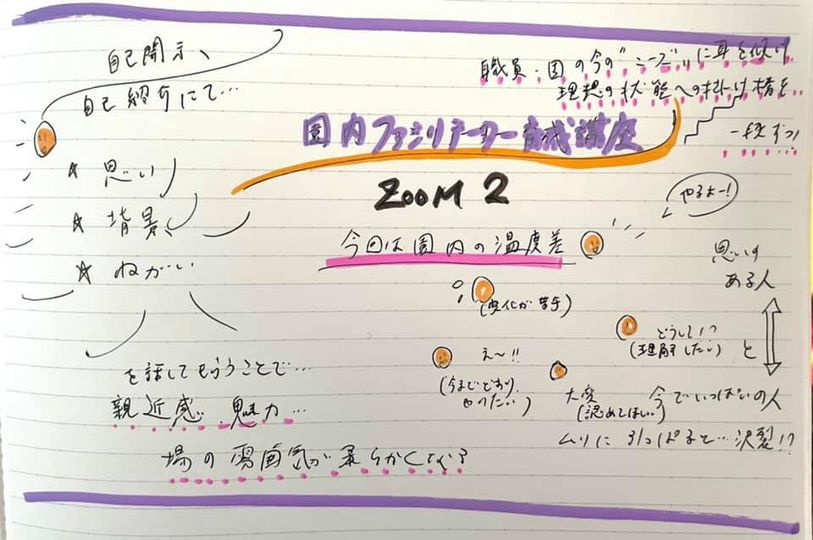 自己開示、
自己紹介にて…
☆ 思い
☆ 背景
☆ ねがい
を話してもらうことで…
親近感 魅力…
場の雰囲気が柔らかくなる?
職員・園の今の"ニーズ"に耳を傾け
理想の状態への掛け橋を…
一段ずつ
園内ファシリテーター育成講座
ZOOM 2
今回は園内の温度差
やるよー!
(変化が苦手)
どうして!?
(理解したい)
え〜!!
(今までどおり
やりたい)
大変
(認めてほしい)
思いが
ある人
と
今でいっぱいの人
ムリに引っぱると…決裂!?